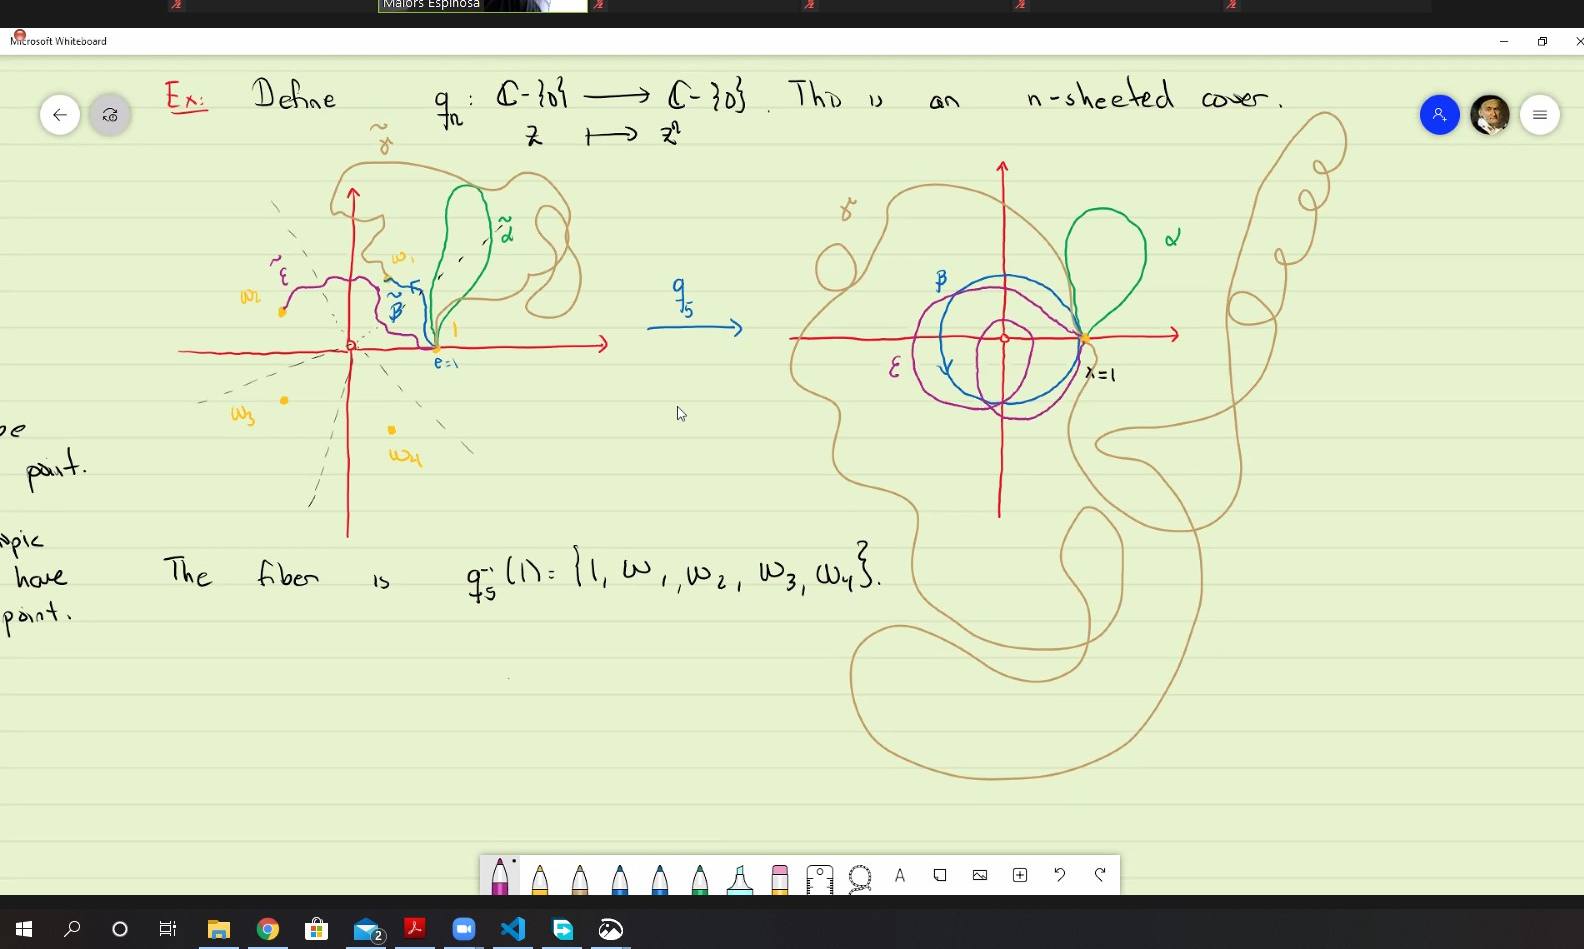 Maiors Espinosa
Microsoft Whiteboard
Ex: Define qₙ : ℂ-{0} ⟶ ℂ-{0}. This is an n-sheeted cover.
z ↦ zⁿ
γ̃
γ
α̃
α
ω₁
ε̃
ω₂
β̃
β
1
e=1
q₅
ε
x=1
ω₃
ω₄
point.
have
point.
The fiber is q₅⁻¹(1) = {1, ω₁, ω₂, ω₃, ω₄}.
A
2